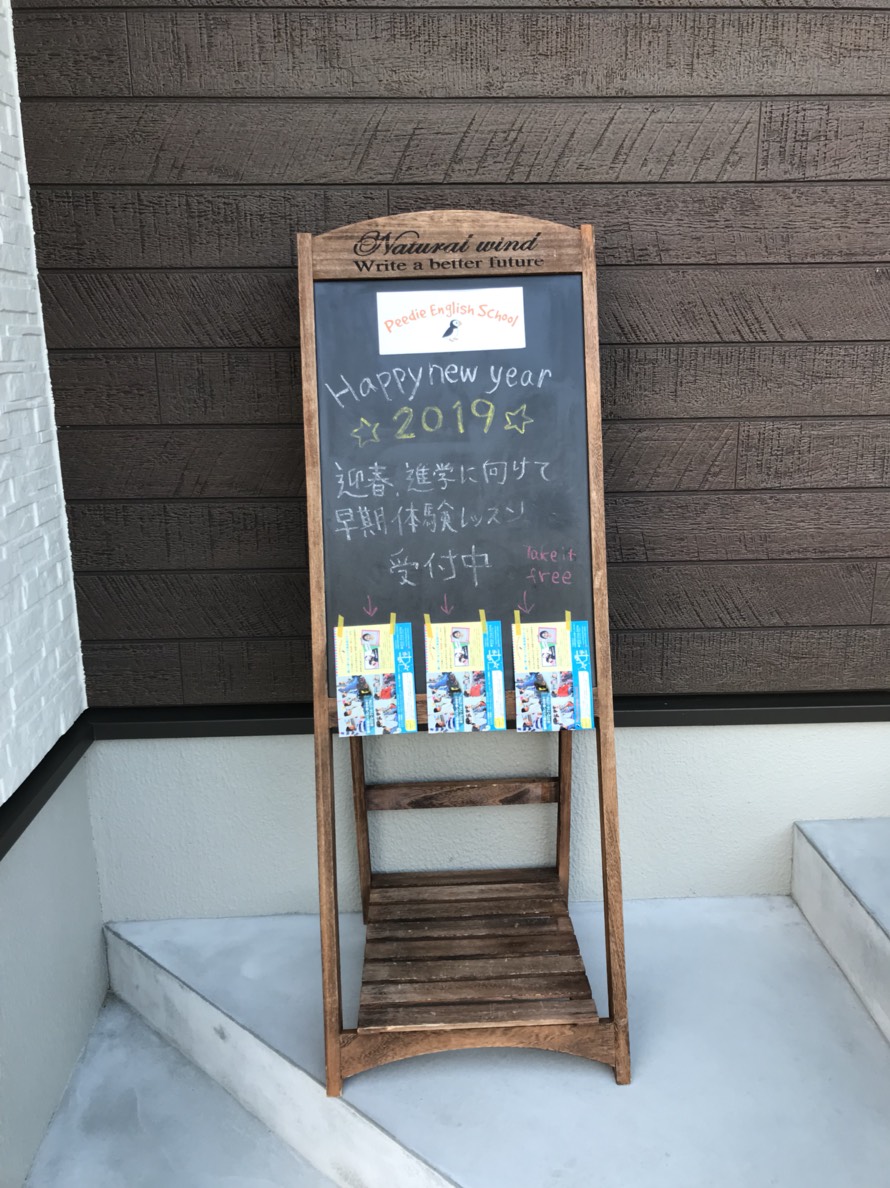 Natural wind
Write a better future
Peedie English School
Happy new year
☆2019☆
迎春、進学に向けて
早期体験レッスン
受付中
Take it
free